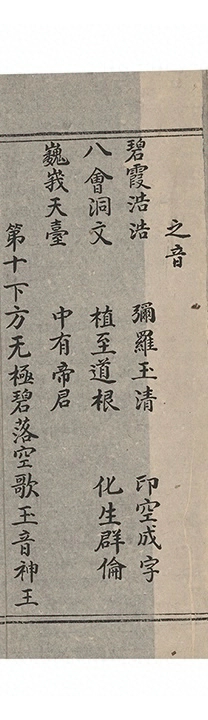 之音
碧霞浩浩　彌羅玉清　印空成字
八會洞文　植至道根　化生群倫
巍峩天臺　中有帝君
第十下方无極碧落空歌玉音神王